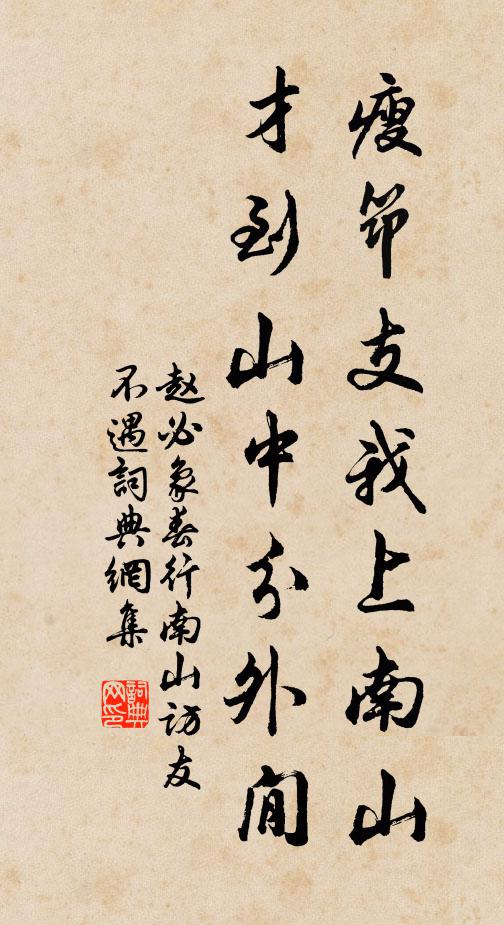 瘦筇支我上南山
才到山中分外閒
赵必象春行南山访友
不遇詞典網集
詞典
网印